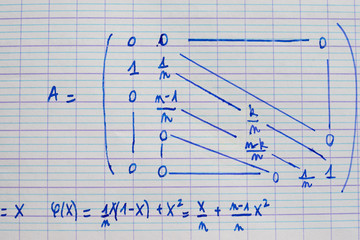 0 0 0
1 1/n
A = 0 n-1/n k/n
0 n-k/n 0
0 0 0 1/n 1
= X φ(X) = 1/n X(1-X) + X² = X/n + n-1/n X²